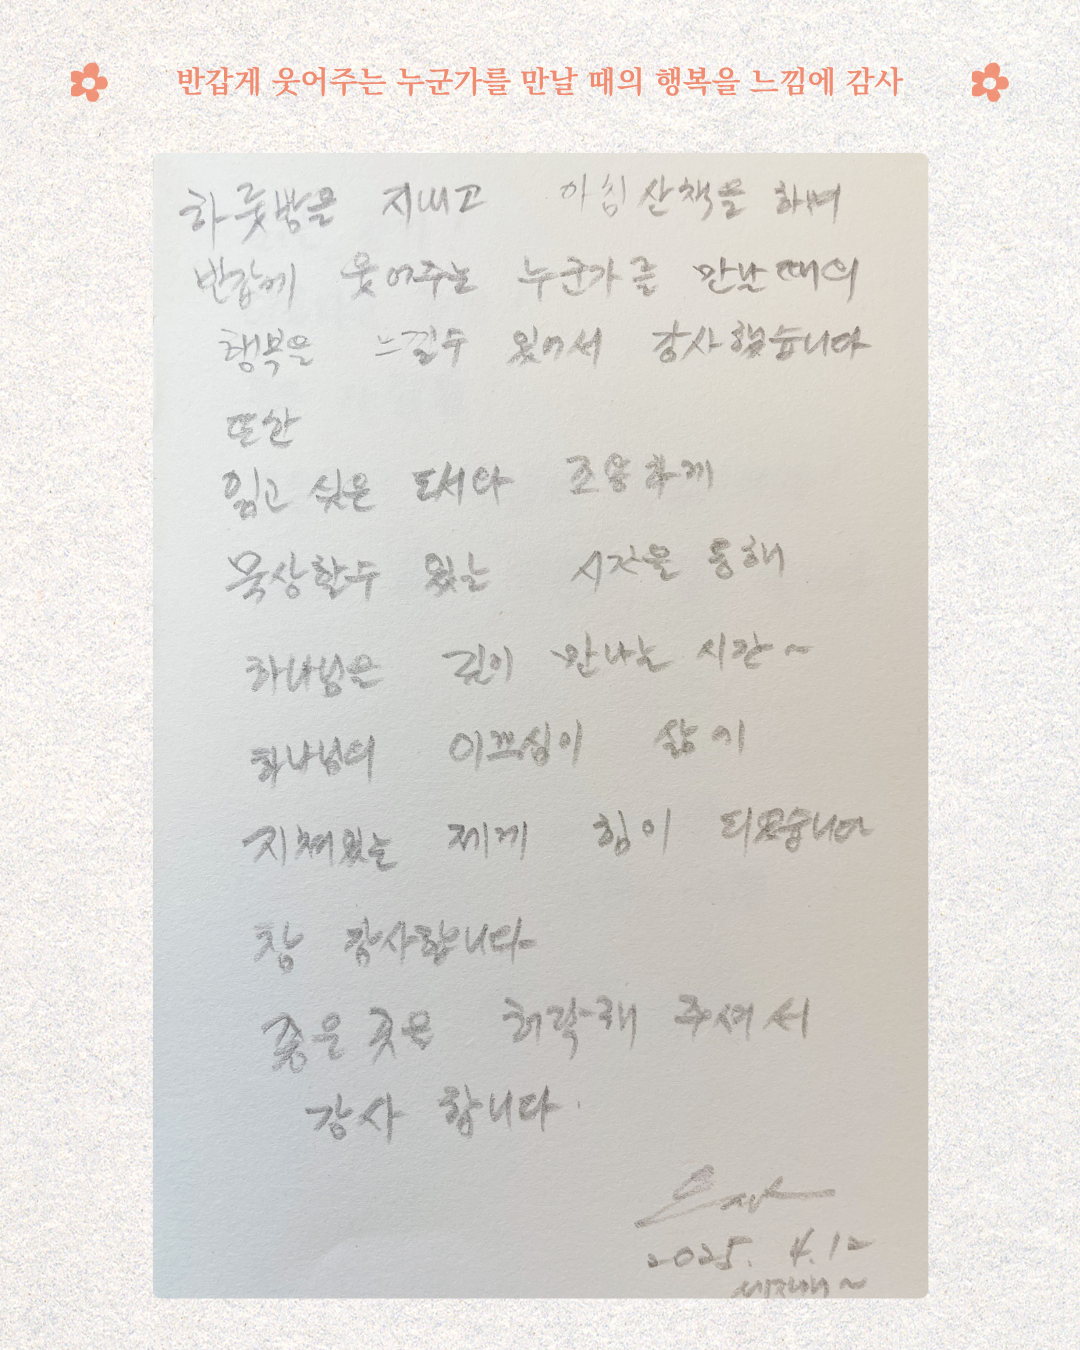 반갑게 웃어주는 누군가를 만날 때의 행복을 느낌에 감사
하룻밤을 지내고 아침 산책을 하며
반갑게 웃어주는 누군가를 만날때의
행복을 느낄수 있어서 감사했습니다
또한
읽고 싶은 도서와 조용하게
묵상할수 있는 시간을 통해
하나님을 깊이 만나는 시간~
하나님의 이끄심이 삶이
지쳐있는 제게 힘이 되었습니다
참 감사합니다
좋은 곳을 허락해 주셔서
감사 합니다.
2025. 4.12